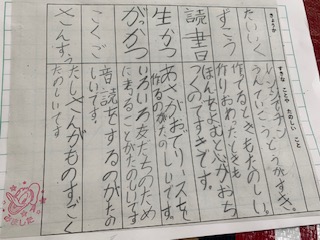 きょうか
すきな ことや たのしい こと
たいいく
うんていとうとうがすき。
ずこう
作るときもたのしい。
作りおわったときも
読書
ほんをよむと心がおち
つくのですきです。
生かつ
あさがおでリースを
作るのがたのしいです。
がっかつ
いろいろ友だちのため
に考えることがたのしいです。
こくご
音読をするのがたの
しいです。
さんすう
たしざんがものすごく
たのしいです